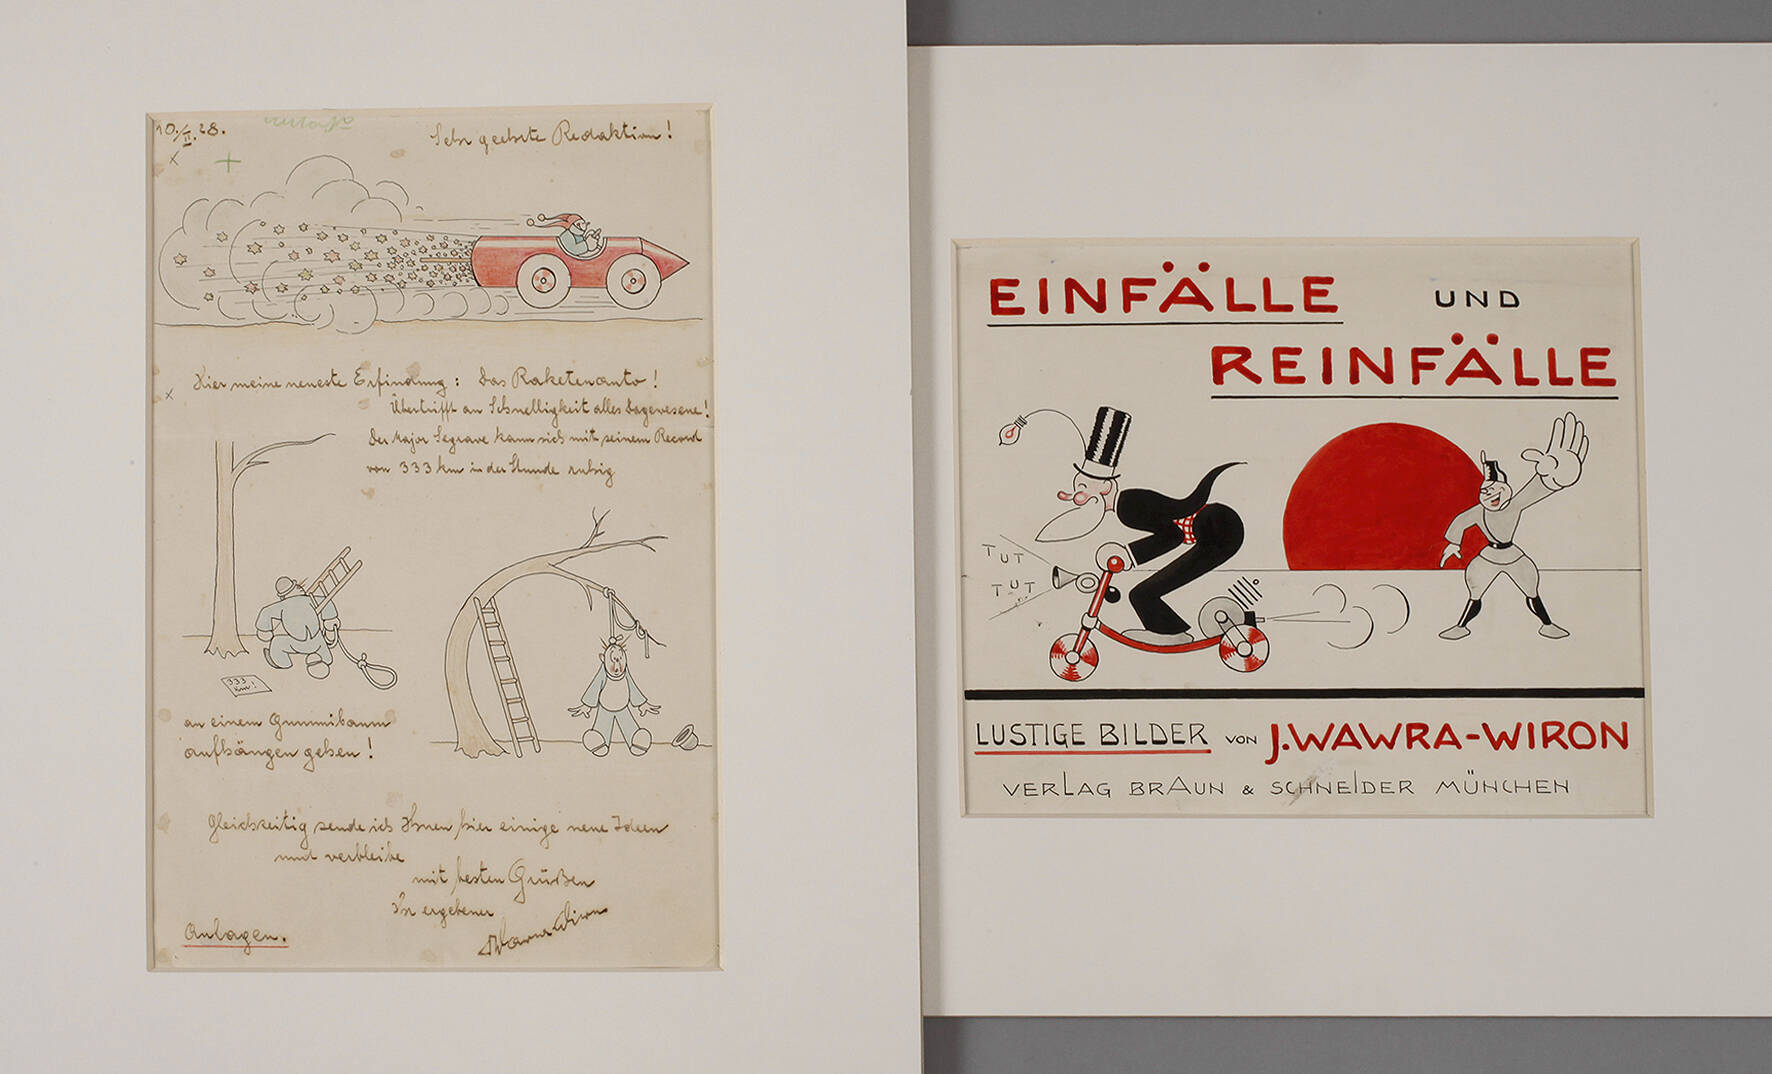 10./II.28.
Sehr geehrte Redaktion!
Hier meine neueste Erfindung: Das Raketenauto!
Übertrifft an Schnelligkeit alles Dagewesene!
Der Major Segrave kann sich mit seinem Record
von 333 km in der Stunde ruhig
333
km!
an einem Gummibaum
aufhängen gehen!
Gleichzeitig sende ich Ihnen hier einige neue Ideen
und verbleibe
mit besten Grüßen
Ihr ergebener
Wawra Wiron
Anlagen.
EINFÄLLE UND
REINFÄLLE
TUT
TUT
LUSTIGE BILDER VON J.WAWRA-WIRON
VERLAG BRAUN & SCHNEIDER MÜNCHEN